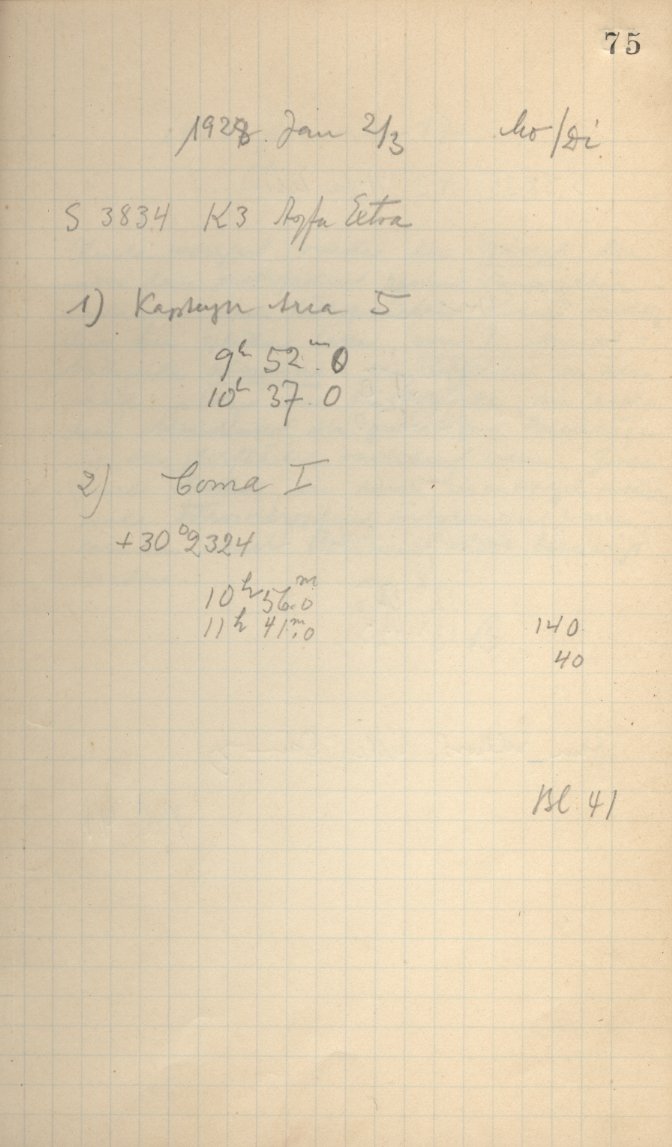 75
1928. Jan 2/3 Mo/Di
S 3834 K3 Agfa Extra
1) Kapteyn Area 5
9h 52m.0
10h 37.0
2) Coma I
+30°2324
10h 56m.0
11h 41m.0 140
40
Bl 41